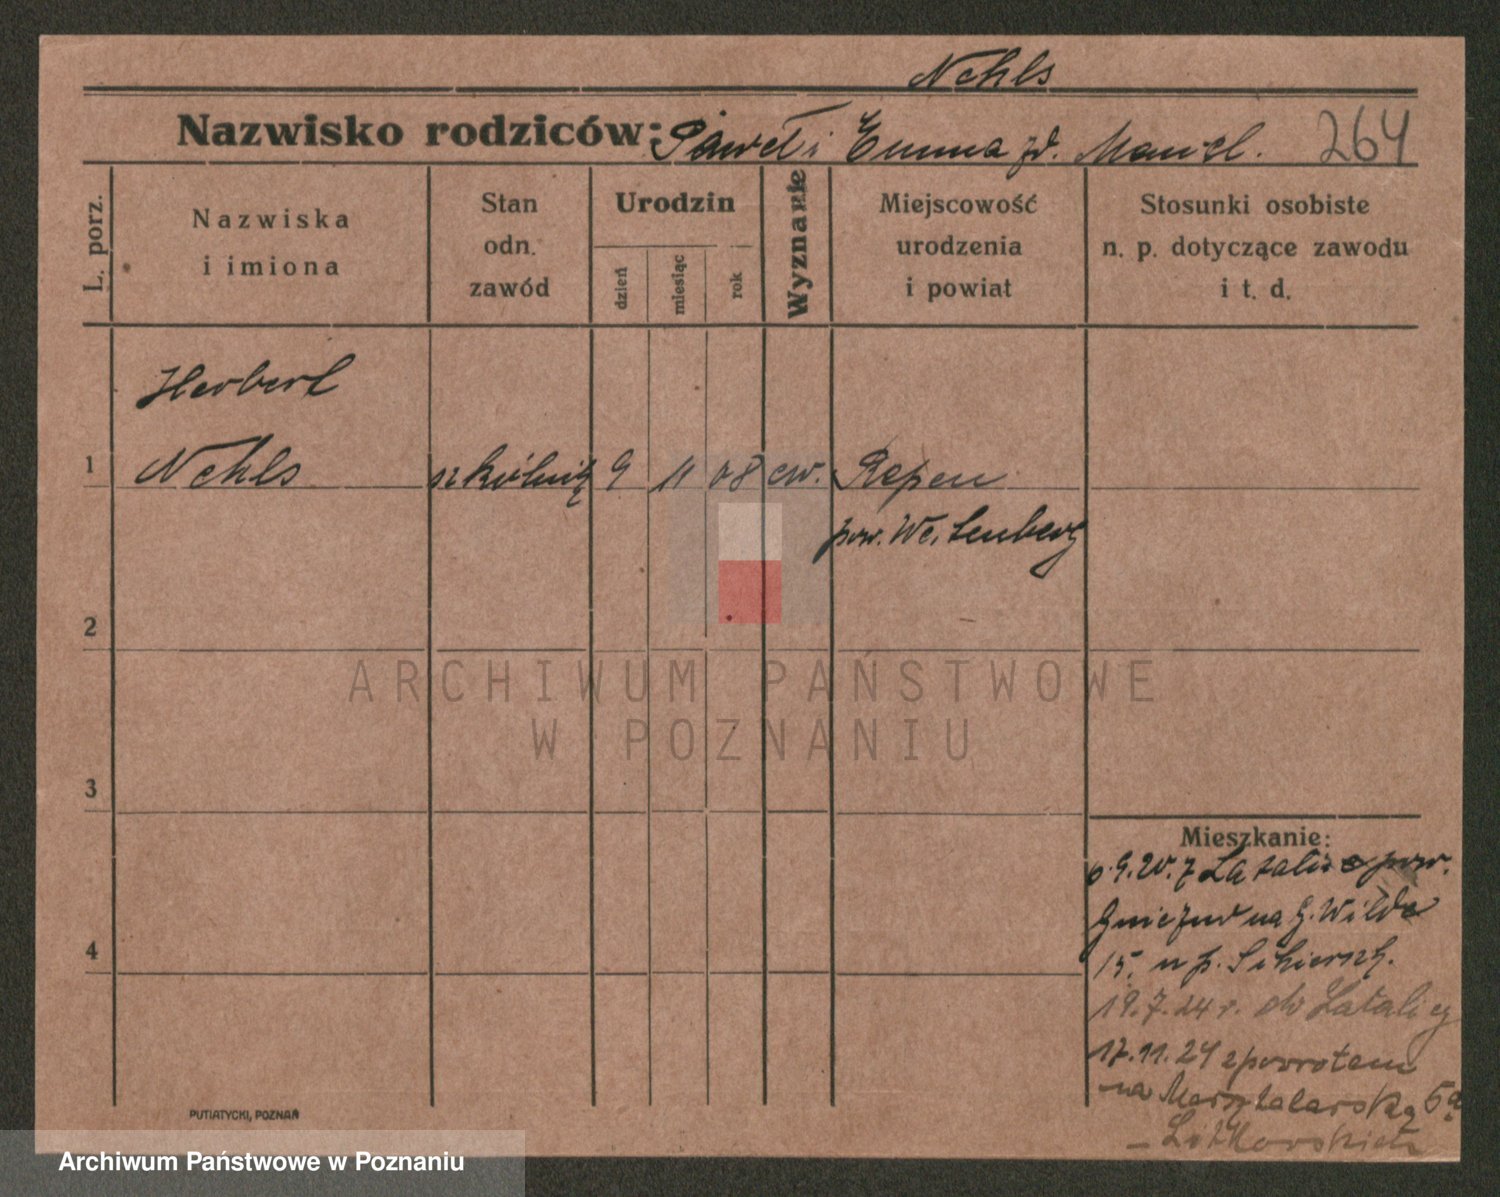 Nehls
Nazwisko rodziców: Paweł i Emma zd. Mancl. 264
L. porz.
Nazwiska
i imiona
Stan
odn.
zawód
Urodzin
dzień
miesiąc
rok
Wyznanie
Miejscowość
urodzenia
i powiat
Stosunki osobiste
n. p. dotyczące zawodu
i t. d.
Herbert
1 Nehls 9 11 08 ew. Repen
pow.
2
ARCHIWUM PAŃSTWOWE
W POZNANIU
3
Mieszkanie:
6.9.20. z Latalice pow.
Gniezno na G. Wilde
4
15. u p.
19.7.24 r. do Latalicy
17.11.24 z powrotem
na Marsztalarską 5a
PUTIATYCKI, POZNAŃ
Archiwum Państwowe w Poznaniu